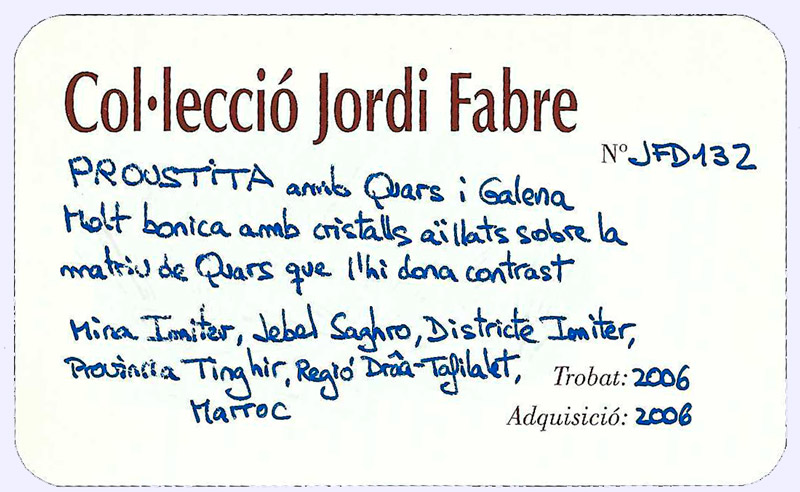 Col·lecció Jordi Fabre
Nº JFD132
PROUSTITA amb Quars i Galena
Molt bonica amb cristalls aïllats sobre la
matriu de Quars que l'hi dona contrast
Mina Imiter, Jebel Saghro, Districte Imiter,
Província Tinghir, Regió Drâa-Tafilalet,
Marroc
Trobat: 2006
Adquisició: 2006